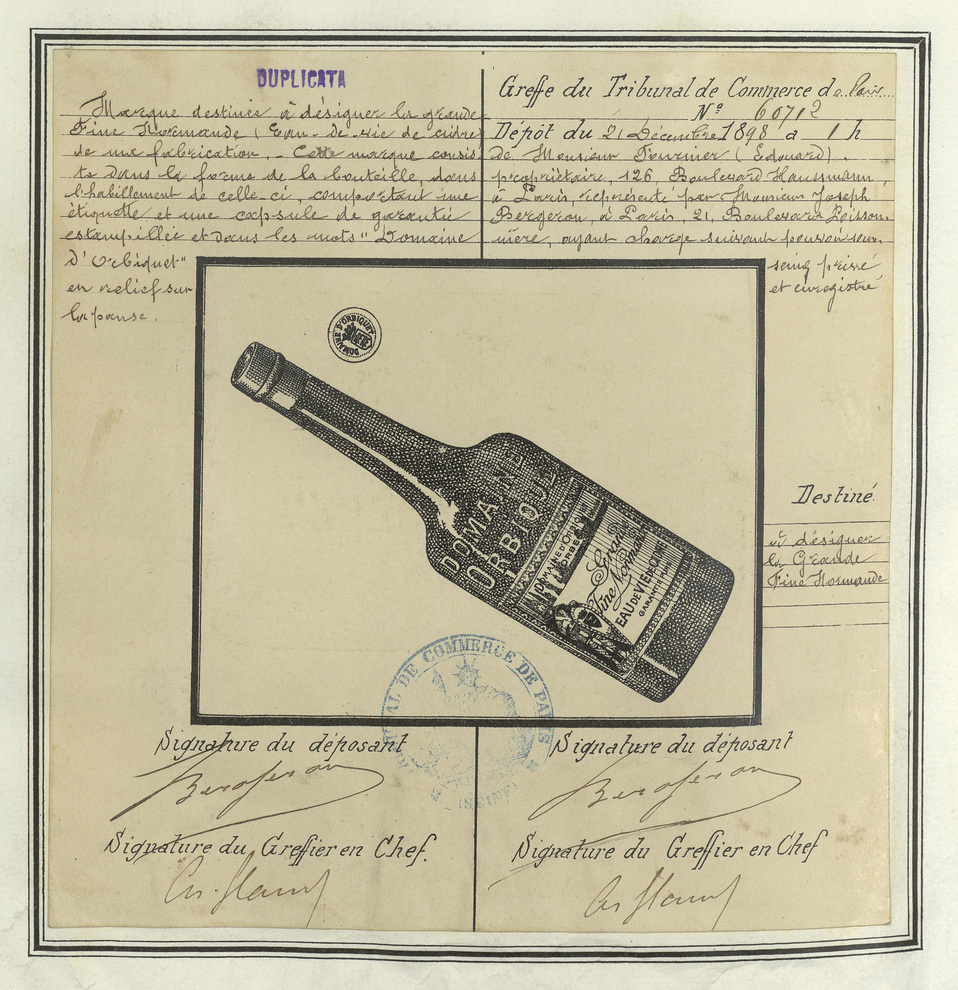 DUPLICATA
Marque destinée à désigner la grande
Fine Normande (Eau-de-vie de cidre)
de ma fabrication. - Cette marque consis
te dans la forme de la bouteille, dans
l'habillement de celle-ci, comportant une
étiquette et une capsule de garantie
estampillée et dans les mots "Domaine
d'Orbiquet"
en relief sur
la panse.
Greffe du Tribunal de Commerce de Paris
N° 60712
Dépôt du 21 Décembre 1898 à 1 h
de Monsieur Fournier (Edouard).
propriétaire, 126, Boulevard Haussmann,
à Paris, représenté par Monsieur Joseph
Bergeron, à Paris, 21, Boulevard Poisson-
nière, ayant charge suivant pouvoir sous
seing privé
et enregistré
DOMAINE D'ORBIQUET
DOMAINE
ORBIQUET
DOMAINE D'ORBIQUET
Grande
Fine Normande
EAU DE VIE DE CIDRE
GARANTIE
Destiné
à désigner
la Grande
Fine Normande
TRIBUNAL DE COMMERCE DE PARIS
Signature du déposant
Bergeron
Signature du déposant
Bergeron
Signature du Greffier en Chef.
Signature du Greffier en Chef